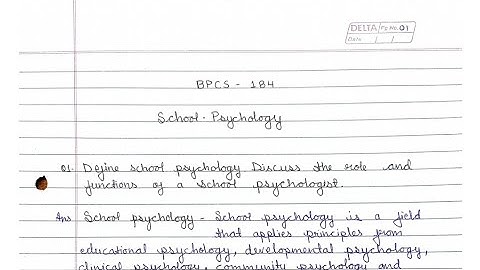 DELTA Pg No. 01
Date / /
BPCS - 184
School - Psychology
01. Define school psychology Discuss the role and
functions of a school psychologist.
Ans School psychology - School psychology is a field
that applies principles from
educational psychology, developmental psychology,
clinical psychology, community psychology and